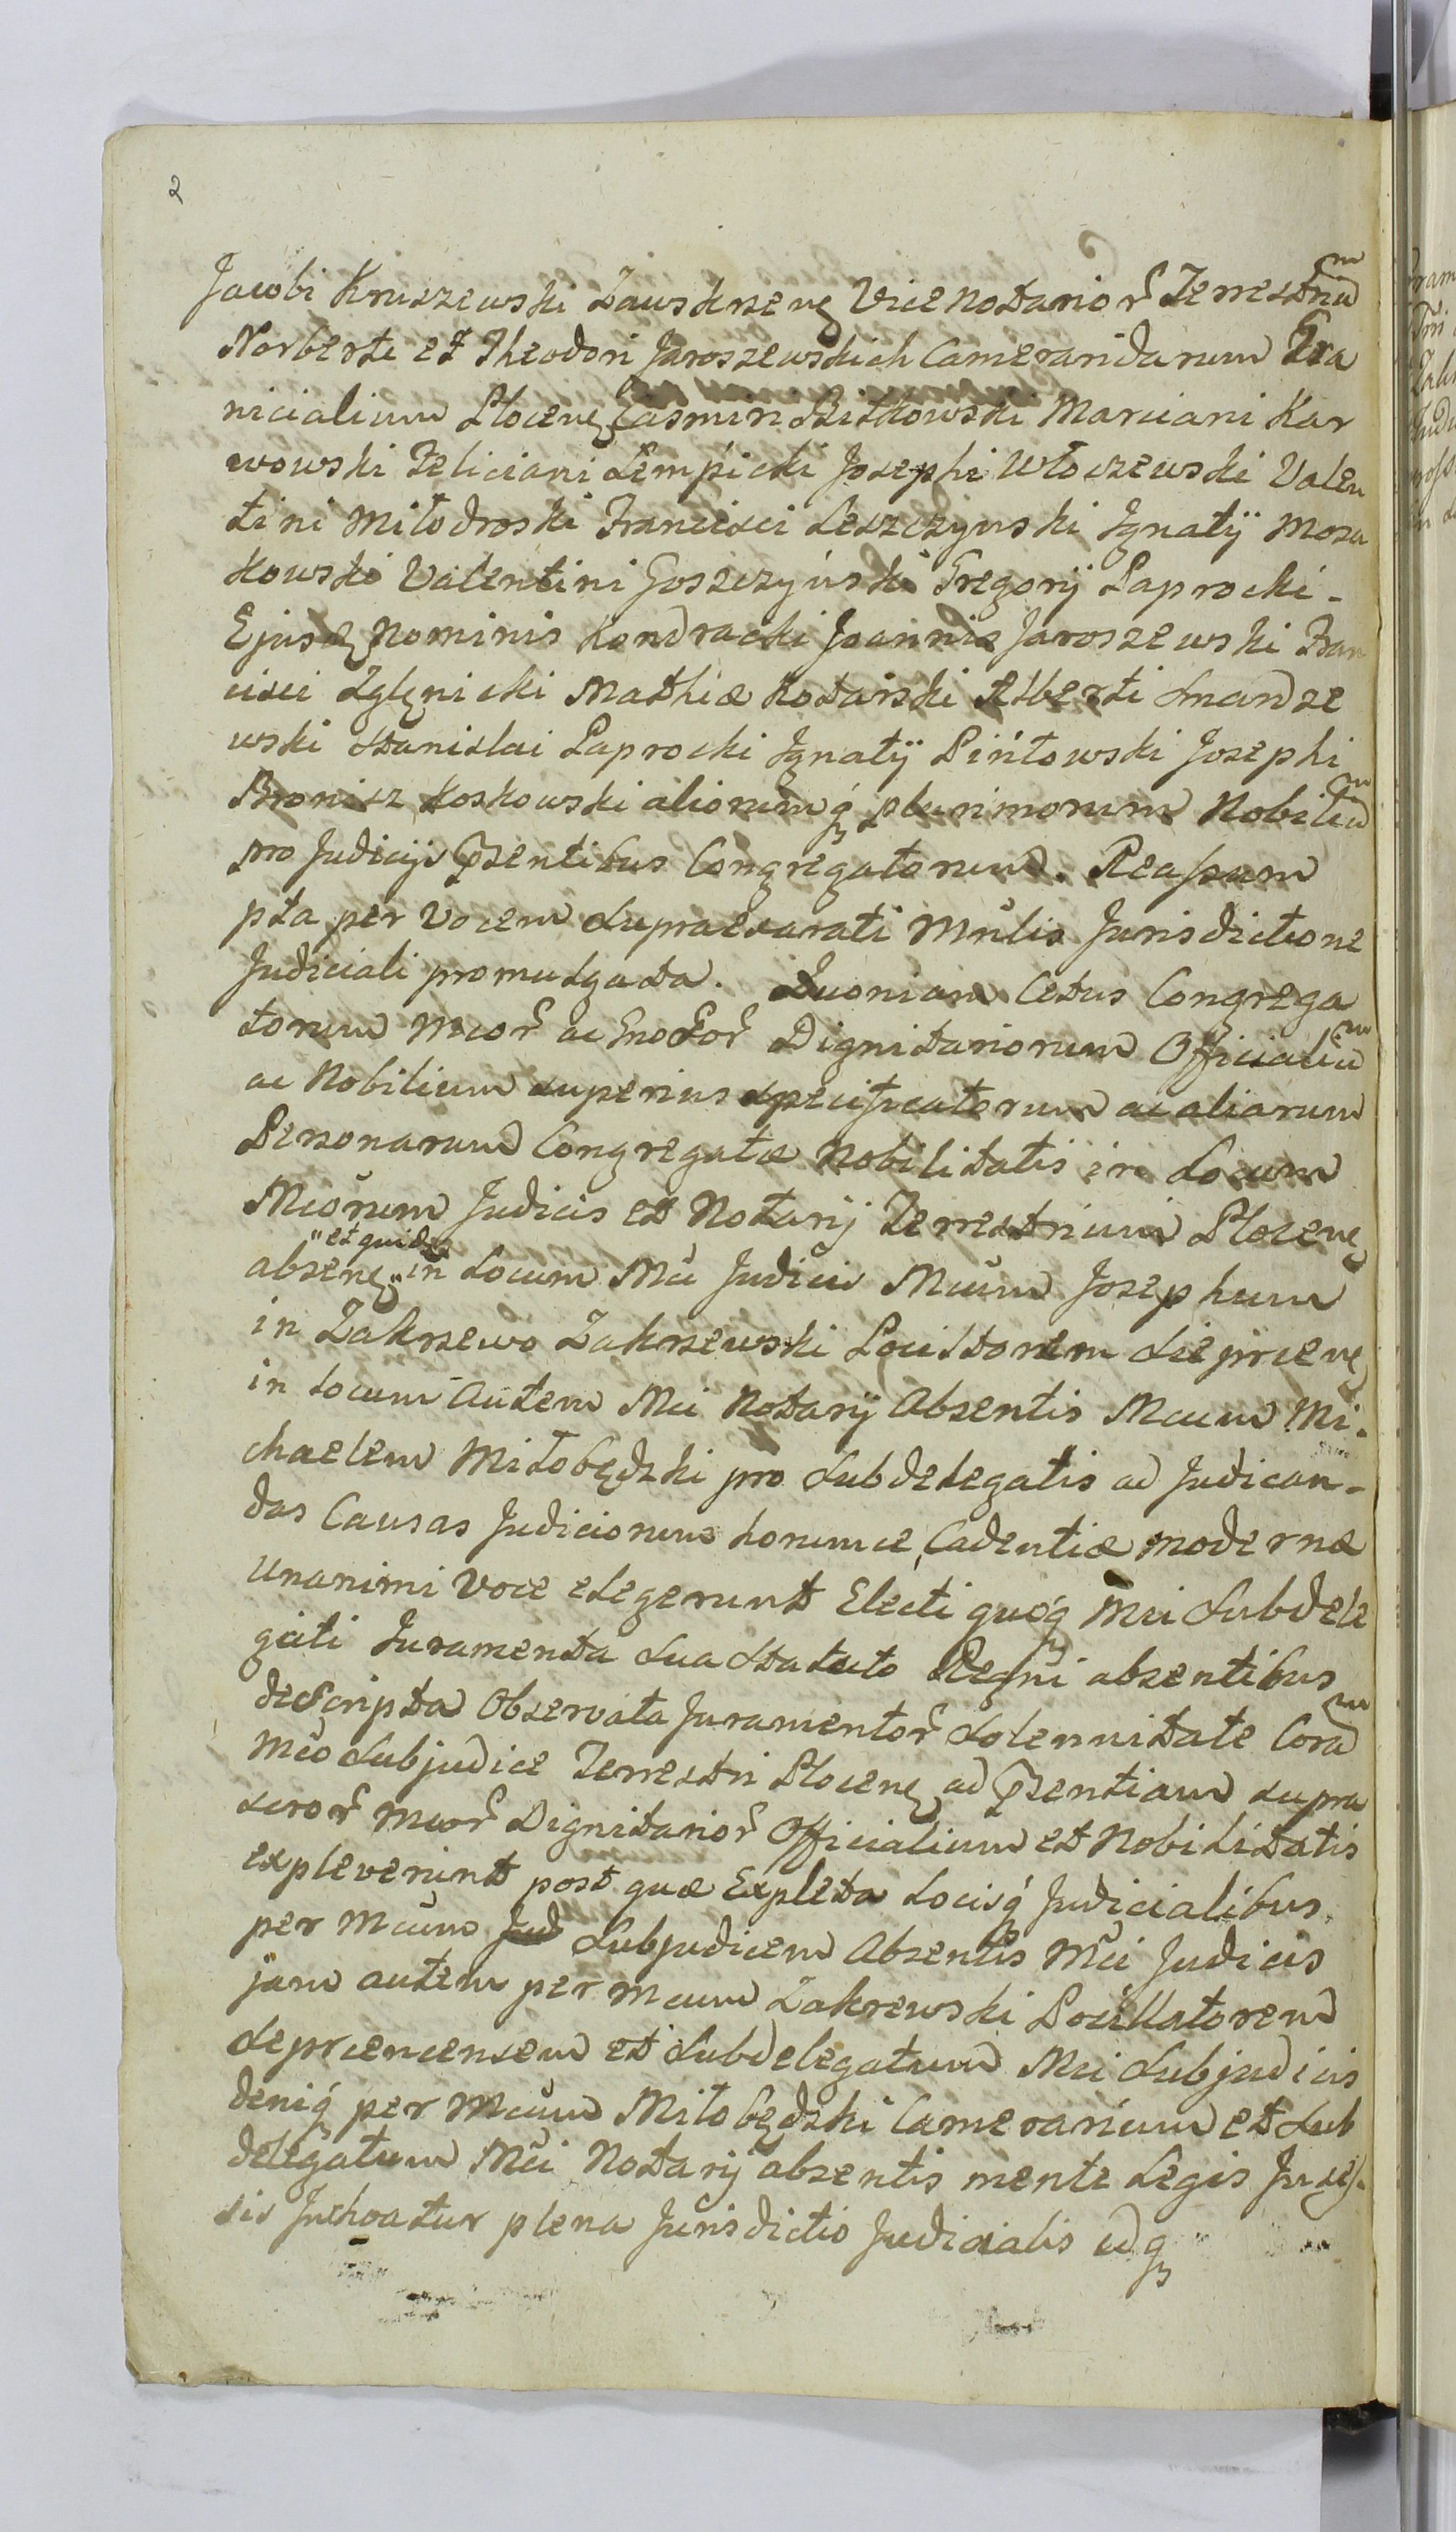 2
Jacobi Kruszewski Zawskrzenę Vice Notarior̃ Terrestriũ
Norberti et Theodori Jaroszewskich Camerariorum Gra
nicialium Plocenę Casimiri Pilkowski Marciani Kar
wowski Feliciani Lempicki Josephi Włoczewski Valen
tini Miłodroski Francisci Leszczynski Ignatÿ Moza
kowski Valentini Goszczyński Gregorÿ Paprocki -
Ejusdę Nominis Kondracki Joannis Jaroszewski Fran
cisci Zglęnicki Mathiæ Kotarski Alberti Smardze
wski Stanislai Paprocki Ignatÿ Pintowski Josephi
Bronisz Koskowski aliorumq́ plurimorum Nobiliũ
pro Judicijs P̃sentibus Congregatorum. Reassum
pta per Vocem Supraexarati Mnlis Jurisdictione
Judiciali promulgata. Quoniam Cetus Congrega
torum Mcor̃ ac Gnosor̃ Dignitariorum Officialiũ
ac Nobilium superius specificatorum ac aliarum
Personarum Congregatæ Nobilitatis in Locum
Mcõrum Judicis et Notarij Terrestrium Plocenę
absenę "et quidę" in Locum Mci Judicis Mcum Josephum
in Zakrzewo Zakrzewski Pocillatorem Sieprcenę
in Locum Autem Mci Notarij Absentis Mcum Mi-
chaelem Miłobędzki pro Subdelegatis ad Judican-
das Causas Judiciorum horumce Cadentiæ modernæ
Unanimi Voce elegerunt Electi quoq́ Mci Subdele
gati Juramenta Sua Statuto Regni absentibus
descripta Observata Juramentor̃ Solennitate Corã
Mco Subjudice Terrestri Plocenę ad P̃sentiam supra
scror̃ Mcor̃ Dignitarior̃ Officialium et Nobilitatis
expleverunt post quæ Expleta Locisq́ Judicialibus
per Mcum Jud Subjudicem Absentis Mci Judicis
jam autem per Mcum Zakrewski Pocillatorem
Sieprcencensem et Subdelegatum Mci Subjudicis
deniq́ per Mcum Miłobędzki Camerarium et Sub
delegatum Mci Notarij absentis mente Legis Insess
sis Inchoatur plena Jurisdictio Judicialis idq́